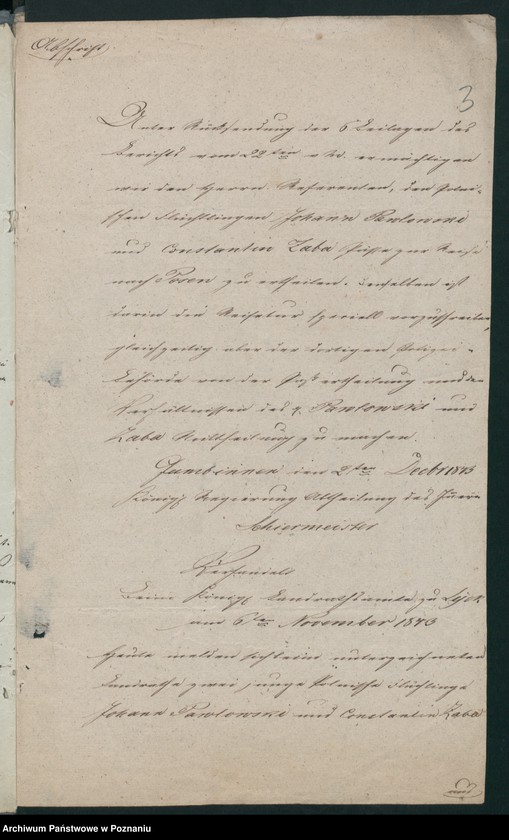 Abschrift
3
Unter Rücksendung der 6 Beilagen des
Berichts vom 22ten v. M. ermächtigen
wir den Herrn Referenten, den Polni-
schen Flüchtlingen Johann Pawlowski
und Constantin Zaba Pässe zur Reise
nach Posen zu ertheilen. Denselben ist
darin die Reisetour speciell vorzuschreiben,
gleichzeitig aber der dortigen Polizei-
behörde von der Paßertheilung und den
Verhältnissen des p. Pawlowski und
Zaba Mittheilung zu machen.
Gumbinnen den 2ten Decbr 1843
Königl. Regierung Abtheilung des Innern
Schiermeister
Verhandelt
beim Königl. Landrathsamte zu Lyck
am 6ten November 1843
Heute melden sich beim unterzeichneten
Landrathe zwei junge Polnische Flüchtlinge
Johann Pawlowski und Constantin Zaba
und
Archiwum Państwowe w Poznaniu